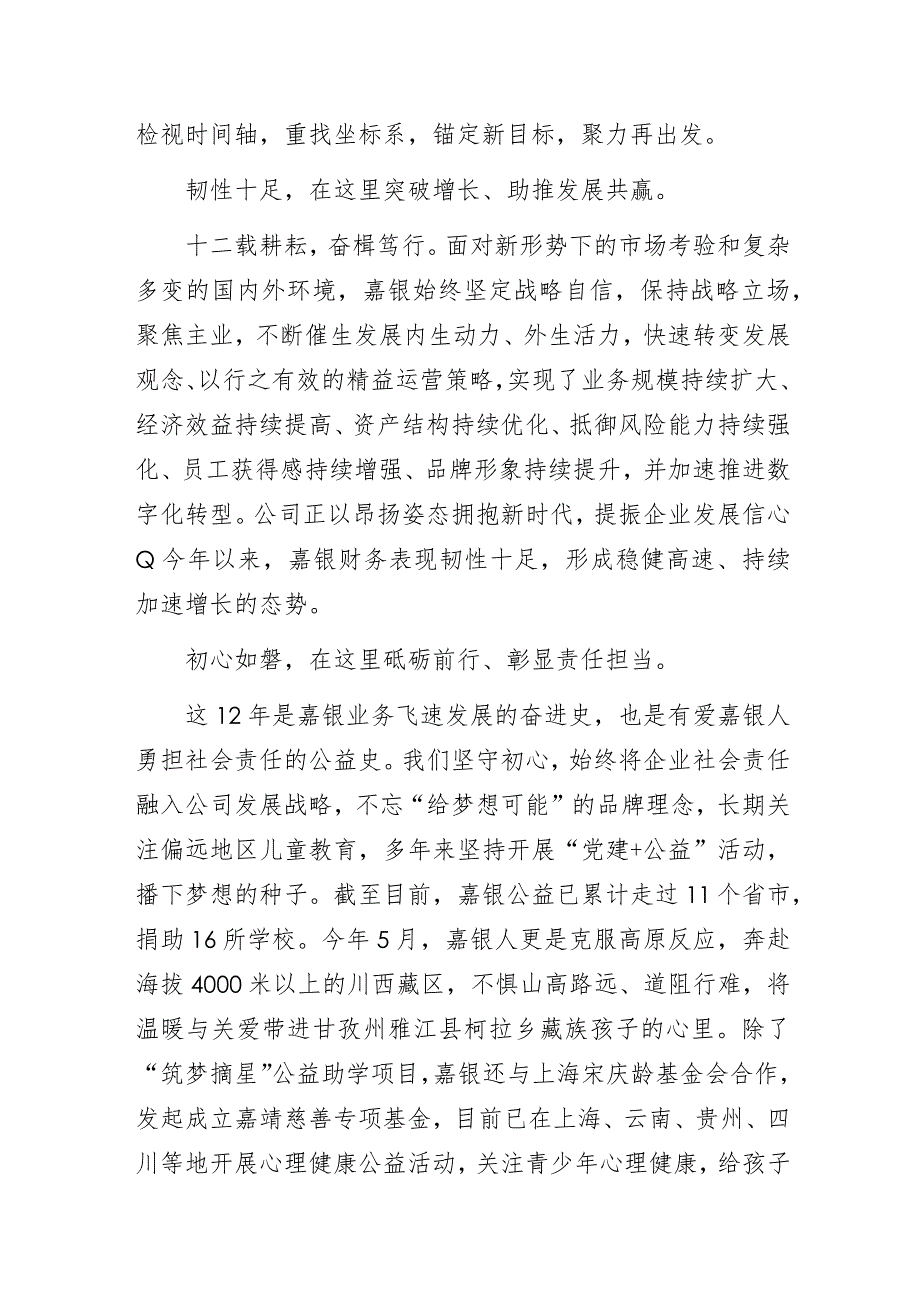 检视时间轴，重找坐标系，锚定新目标，聚力再出发。
韧性十足，在这里突破增长、助推发展共赢。
十二载耕耘，奋楫笃行。面对新形势下的市场考验和复杂
多变的国内外环境，嘉银始终坚定战略自信，保持战略立场，
聚焦主业，不断催生发展内生动力、外生活力，快速转变发展
观念、以行之有效的精益运营策略，实现了业务规模持续扩大、
经济效益持续提高、资产结构持续优化、抵御风险能力持续强
化、员工获得感持续增强、品牌形象持续提升，并加速推进数
字化转型。公司正以昂扬姿态拥抱新时代，提振企业发展信心
Q今年以来，嘉银财务表现韧性十足，形成稳健高速、持续
加速增长的态势。
初心如磐，在这里砥砺前行、彰显责任担当。
这12年是嘉银业务飞速发展的奋进史，也是有爱嘉银人
勇担社会责任的公益史。我们坚守初心，始终将企业社会责任
融入公司发展战略，不忘“给梦想可能”的品牌理念，长期关
注偏远地区儿童教育，多年来坚持开展“党建+公益”活动，
播下梦想的种子。截至目前，嘉银公益已累计走过11个省市，
捐助16所学校。今年5月，嘉银人更是克服高原反应，奔赴
海拔4000米以上的川西藏区，不惧山高路远、道阻行难，将
温暖与关爱带进甘孜州雅江县柯拉乡藏族孩子的心里。除了
“筑梦摘星”公益助学项目，嘉银还与上海宋庆龄基金会合作，
发起成立嘉靖慈善专项基金，目前已在上海、云南、贵州、四
川等地开展心理健康公益活动，关注青少年心理健康，给孩子